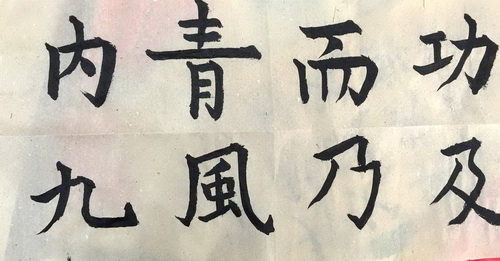 功及
而乃
青風
内九